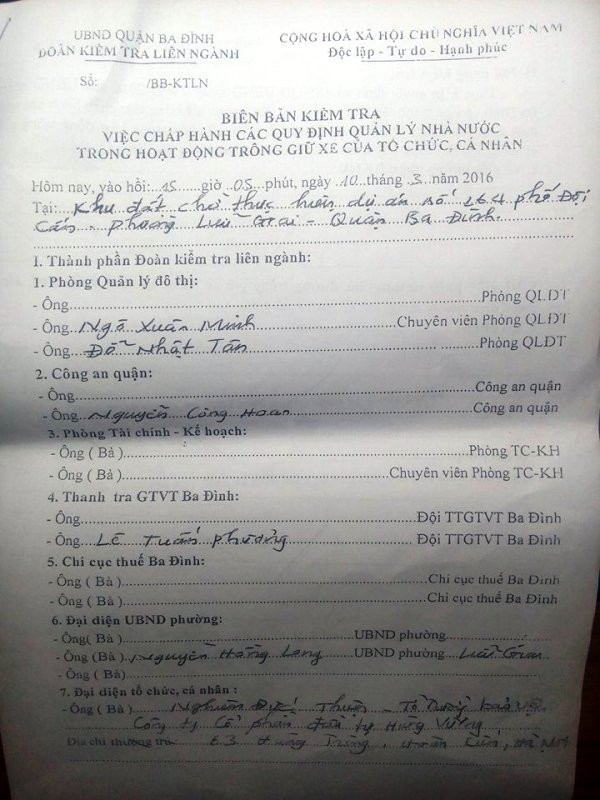 UBND QUẬN BA ĐÌNH
ĐOÀN KIỂM TRA LIÊN NGÀNH
CỘNG HOÀ XÃ HỘI CHỦ NGHĨA VIỆT NAM
Độc lập - Tự do - Hạnh phúc
Số: /BB-KTLN
BIÊN BẢN KIỂM TRA
VIỆC CHẤP HÀNH CÁC QUY ĐỊNH QUẢN LÝ NHÀ NƯỚC
TRONG HOẠT ĐỘNG TRÔNG GIỮ XE CỦA TỔ CHỨC, CÁ NHÂN
Hôm nay, vào hồi: 15 giờ 05 phút, ngày 10 tháng 3 năm 2016
Tại: Khu đất chờ thực hiện dự án số 164 phố Đội
Cấn, phường Liễu Giai - Quận Ba Đình.
I. Thành phần Đoàn kiểm tra liên ngành:
1. Phòng Quản lý đô thị:
- Ông Phòng QLĐT
- Ông Ngô Xuân Minh Chuyên viên Phòng QLĐT
- Ông Đỗ Nhật Tân Phòng QLĐT
2. Công an quận:
- Ông Công an quận
- Ông Nguyễn Công Hoan Công an quận
3. Phòng Tài chính - Kế hoạch:
- Ông ( Bà ) Phòng TC-KH
- Ông ( Bà ) Chuyên viên Phòng TC-KH
4. Thanh tra GTVT Ba Đình:
- Ông Đội TTGTVT Ba Đình
- Ông Lê Tuấn Phương Đội TTGTVT Ba Đình
5. Chi cục thuế Ba Đình:
- Ông ( Bà ) Chi cục thuế Ba Đình
- Ông ( Bà ) Chi cục thuế Ba Đình
6. Đại diện UBND phường:
- Ông( Bà ) UBND phường
- Ông (Bà ) Nguyễn Hoàng Long UBND phường Liễu Giai
7. Đại diện tổ chức, cá nhân :
- Ông ( Bà ) Thuận - Tổ bảo vệ
Công ty Cổ phần đầu tư Hùng Vương
Địa chỉ thường trú: 63 Hoàn Kiếm, Hà Nội